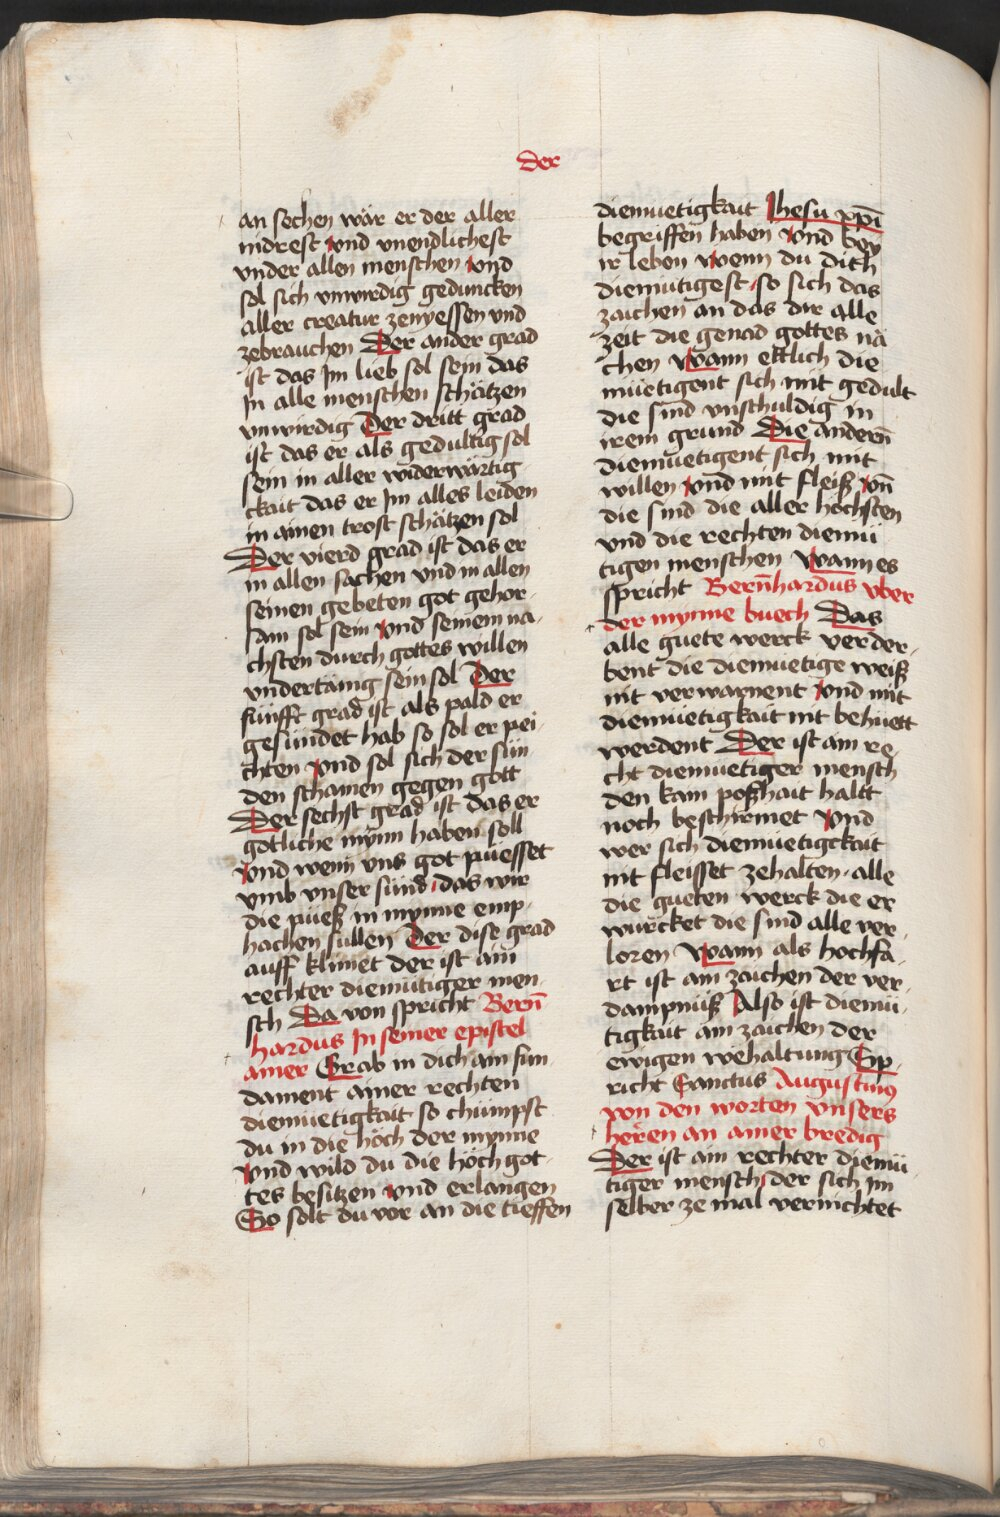 der
an sechen wär er der aller
nidrest vnd vnendlichest
vnder allen menschen vnd
sol sich vnwirdig geduncken
aller creatur zenyessen vnd
zebrauchen Der ander grad
ist das Im lieb sol sein das
In alle menschen schätzen
vnwirdig Der dritt grad
ist das er als gedultig sol
sein in aller widerwärtig
ckait das er Im alles leiden
in ainen trost schätzen sol
Der vierd grad ist das er
in allen sachen vnd in allen
seinen gebeten got gehor-
sam sol sein vnd seinem nä-
chsten durch gottes willen
vndertänig sein sol Der
fünfft grad ist als pald er
gesündet hab so sol er pei-
chten vnd sol sich der sün-
den schamen gegen gott
Der sechst grad ist das er
götliche mynn haben soll
vnd wenn vns got püesset
vmb vnser sünd, das wir
die püeß in mynne emp-
hachen süllen Der dise grad
auff klimet der ist ain
rechter diemütiger men-
sch Da von spricht Bern̄
hardus In seiner epistel
ainer Grab in dich ain fun-
dament ainer rechten
diemuetigkait so chümpst
du in die höch der mynne
vnd wild du die höch got-
tes besitzen vnd erlangen
So solt du vor an die tieffen
diemuetigkait Ihesu xpī
begriffen haben vnd bey
ir leben wenn du dich
diemütigest, so sich das
zaichen an das dir alle
zeit die genad gottes nä
chen Wann ettlich die
müetigent sich mit gedult
die sind vnschuldig in
irem grund Die andern̄
diemuetigent sich mit
willen vnd mit fleiß vn̄
die sind die aller höchsten
vnd die rechten diemü
tigen menschen Wann es
spricht Bern̄hardus vber
der mynne buech Das
alle guete werck verder-
bent die diemuetige weiß
nit verwarnent vnd mit
diemuetigkait nit behüett
werdent Der ist ain re-
cht diemuetiger mensch
den kain poßhait haltt
noch beschirmet vnd
wer sich diemuetigckait
nit fleisset zehalten, alle
die gueten werck die er
würcket die sind alle ver-
loren Wann als hochfa-
rt ist ain zaichen der ver-
dampnüß Also ist diemü-
tigkait ain zaichen der
ewigen wehaltung Sp-
richt Sanctus Augustinus
von den worten vnsers
heren an ainer bredig
Der ist ain rechter diemü
tiger mensch, der sich im
selber ze mal vernichtet